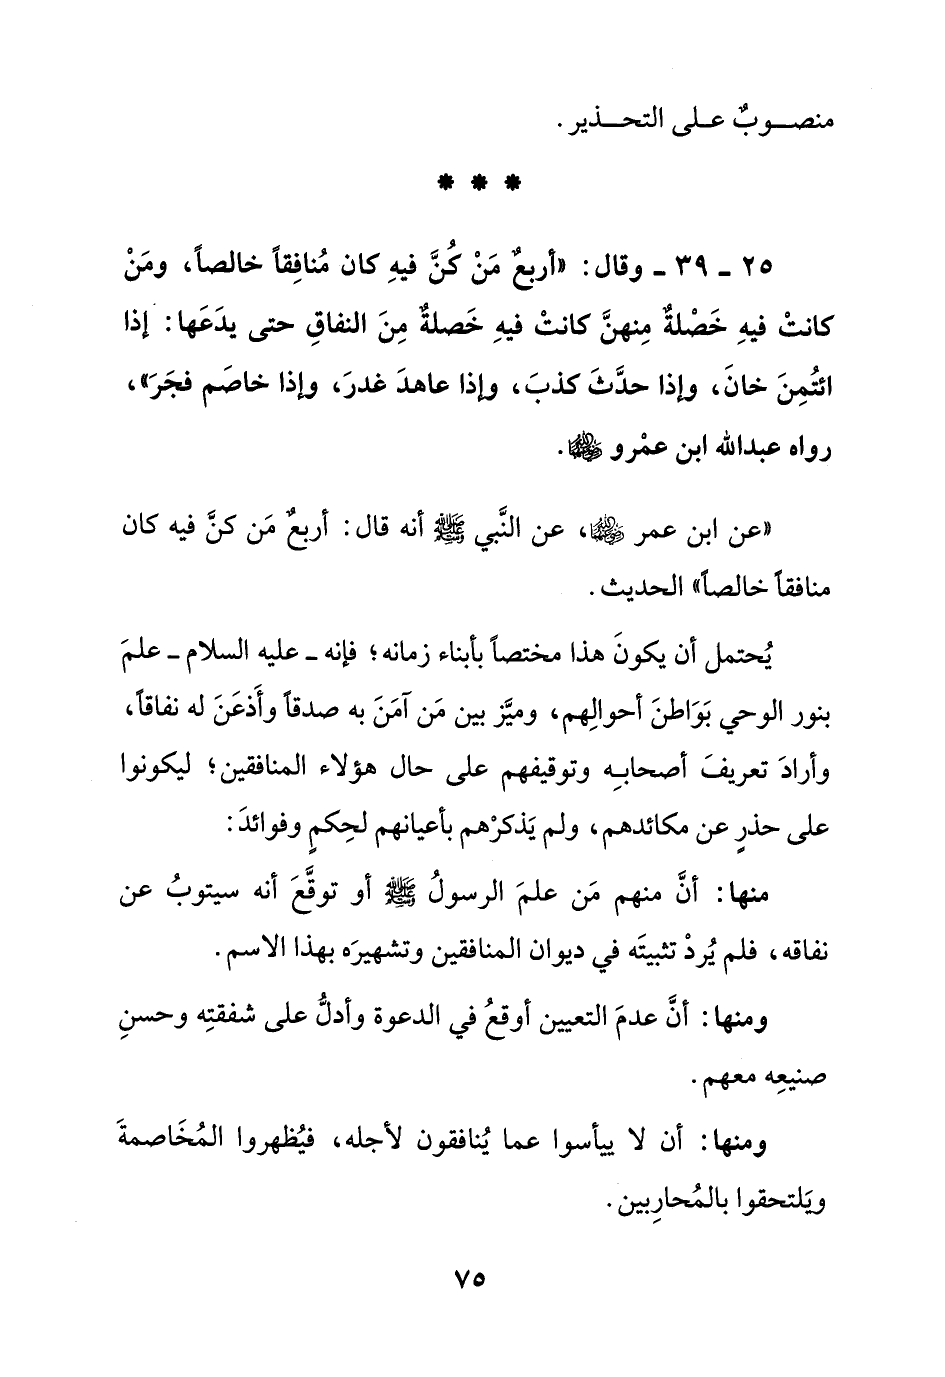 منصوبٌ على التحذير .
* * *
٢٥ ـ ٣٩ ـ وقال : «أربعٌ مَنْ كُنَّ فيهِ كان مُنافِقاً خالصاً، ومَنْ
كانتْ فيهِ خَصْلةٌ مِنهنَّ كانتْ فيهِ خَصلةٌ مِنَ النفاقِ حتى يدَعَها : إذا
ائتُمِنَ خانَ، وإذا حدَّثَ كذبَ، وإذا عاهدَ غدرَ، وإذا خاصَم فجَرَ»،
رواه عبدالله ابن عمْرو ﵁.
«عن ابن عمر ﵁، عن النَّبي ﷺ أنه قال : أربعٌ مَن كنَّ فيه كان
منافقاً خالصاً» الحديث .
يُحتمل أن يكونَ هذا مختصاً بأبناء زمانه؛ فإنه ـ عليه السلام ـ علمَ
بنور الوحي بَوَاطنَ أحوالِهم، وميَّز بين مَن آمَنَ به صدقاً وأَذعَنَ له نفاقاً،
وأرادَ تعريفَ أصحابِه وتوقيفهم على حال هؤلاء المنافقين؛ ليكونوا
على حذرٍ عن مكائدهم، ولم يَذكرْهم بأعيانهم لحِكمٍ وفوائدَ :
منها : أنَّ منهم مَن علمَ الرسولُ ﷺ أو توقَّعَ أنه سيتوبُ عن
نفاقه، فلم يُردْ تثبيتَه في ديوان المنافقين وتشهيرَه بهذا الاسم .
ومنها : أنَّ عدمَ التعيين أوقعُ في الدعوة وأدلُّ على شفقتِه وحسنِ
صنيعِه معهم .
ومنها : أن لا ييأسوا عما يُنافقون لأجله، فيُظهروا المُخَاصمةَ
ويَلتحقوا بالمُحارِبين .
٧٥